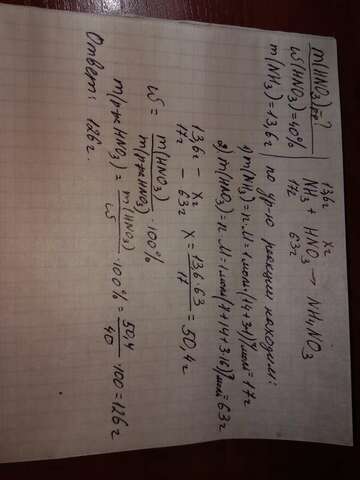 m(HNO3)р-р?
W(HNO3)=40%
m(NH3)=13,6г
13,6г xг
NH3 + HNO3 → NH4NO3
17г 63г
по ур-ю реакции находим:
1) m(NH3)=n·M=1моль·(14+3·1)г/моль=17г
2) m(HNO3)=n·M=1моль(1+14+3·16)г/моль=63г
13,6г – xг
17г – 63г x = 13,6·63/17 = 50,4г
W = m(HNO3)/m(р-ра HNO3) · 100%
m(р-ра HNO3) = m(HNO3)/W · 100% = 50,4/40 · 100 = 126г
Ответ: 126г.